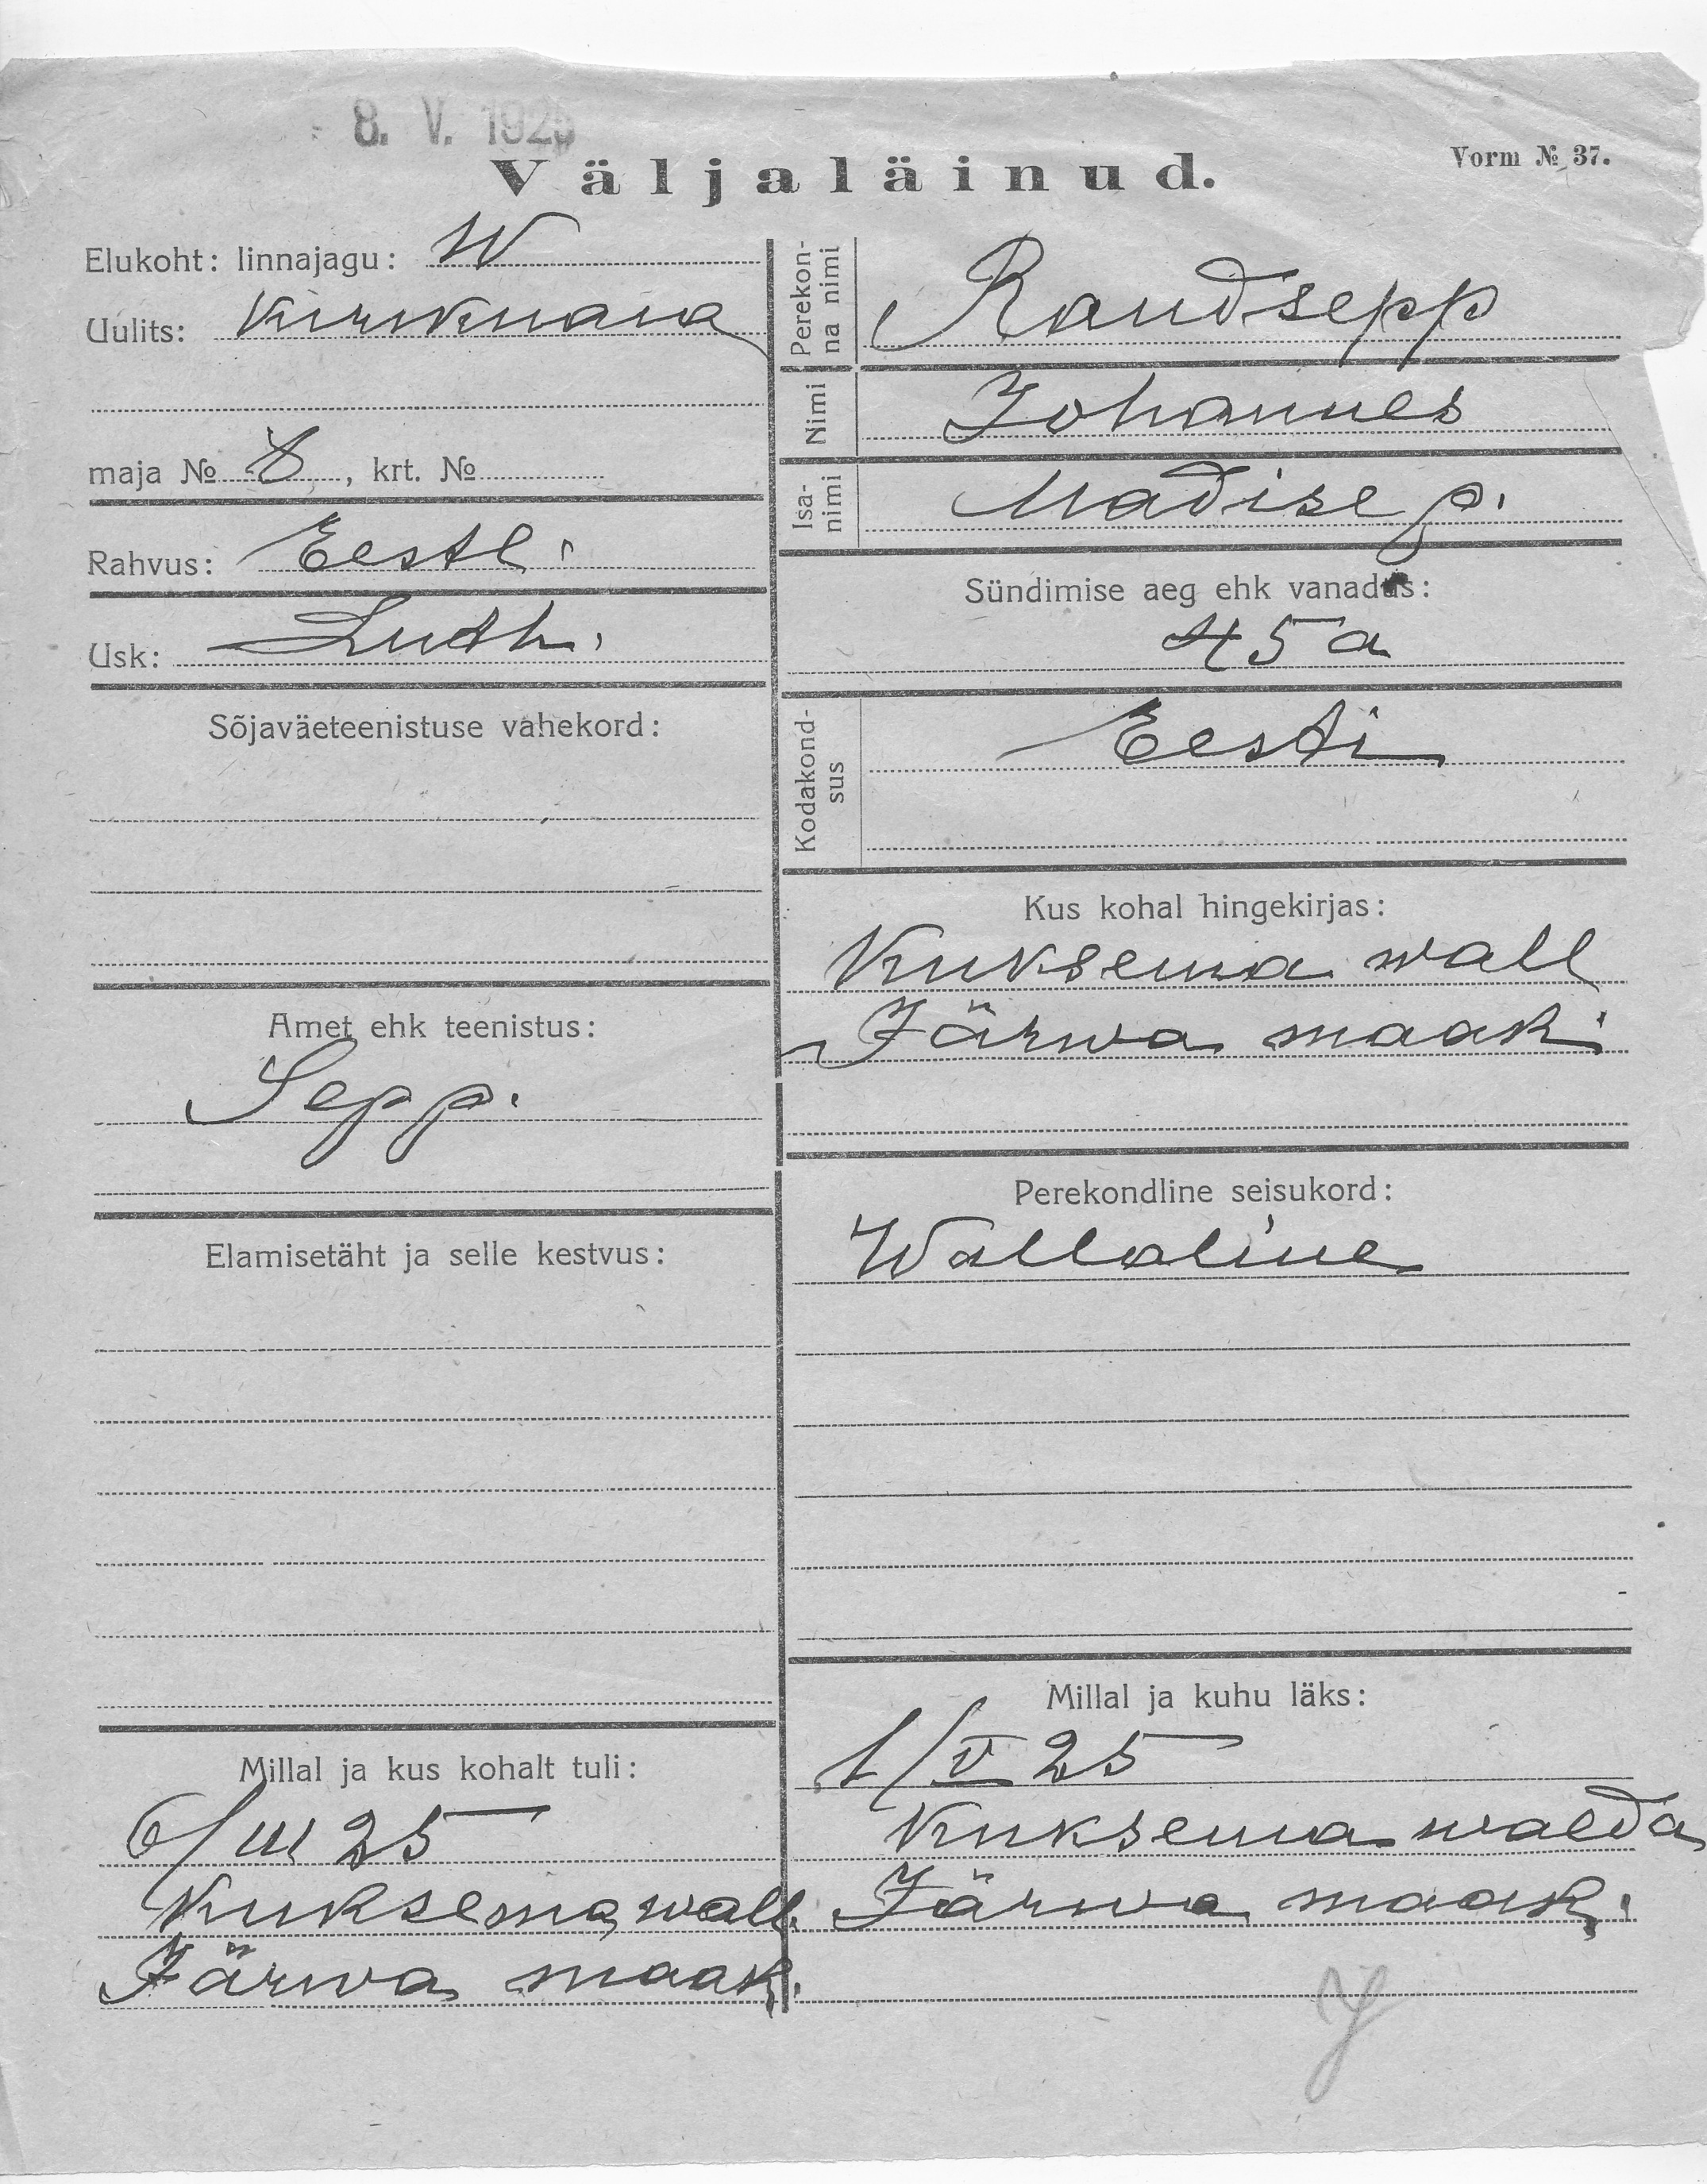 8. V. 1925
Väljaläinud.
Vorm № 37.
Elukoht: linnajagu: W
Uulits: Kirikmaia
maja № 8, krt. №
Rahvus: Eestl.
Usk: Luth.
Sõjaväeteenistuse vahekord:
Amet ehk teenistus:
Sepp.
Elamisetäht ja selle kestvus:
Millal ja kus kohalt tuli:
6/III 25
Kuksema wall.
Järwa maak.
Perekon-
na nimi
Raudsepp
Nimi
Johannes
Isa-
nimi
Madise p.
Sündimise aeg ehk vanadus:
45 a
Kodakond-
sus
Eesti
Kus kohal hingekirjas:
Kuksema wall
Järwa maak.
Perekondline seisukord:
Wallaline
Millal ja kuhu läks:
1/V 25
Kuksema walda
Järwa maak.